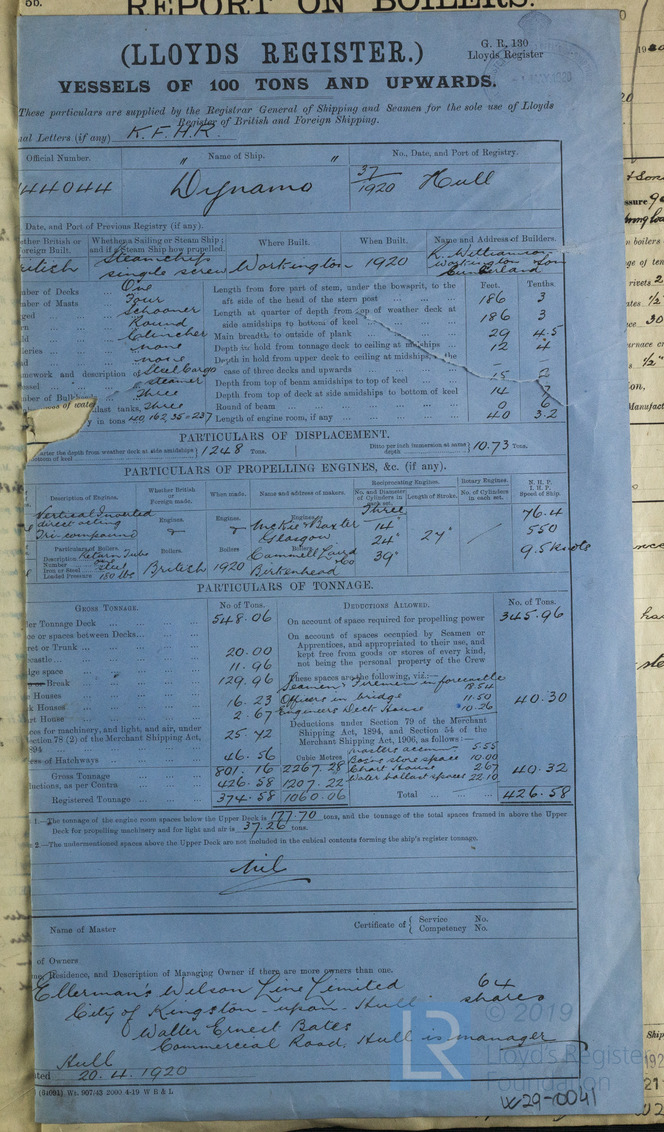 REPORT ON BOILERS.
(LLOYDS REGISTER.)
G. R. 130
Lloyds Register
VESSELS OF 100 TONS AND UPWARDS.
These particulars are supplied by the Registrar General of Shipping and Seamen for the sole use of Lloyds
Register of British and Foreign Shipping.
al Letters (if any) K. F. H. R.
Official Number. " Name of Ship. " No., Date, and Port of Registry.
44044 Dynamo 37/1920 Hull
Date, and Port of Previous Registry (if any).
ether British or Foreign Built. Whether a Sailing or Steam Ship; and if a Steam Ship how propelled. Where Built. When Built. Name and Address of Builders.
British Steamship single screw Workington 1920 R. Williamson Son Workington Cumberland
mber of Decks One
mber of Masts Four
ged Schooner
rn Round
ld Clencher
leries none
ad none
mework and description of Steel Cargo
essel steamer
mber of Bulkheads Three
ses of water ballast tanks, Three
y in tons 40,162,35=237
Length from fore part of stem, under the bowsprit, to the Feet. Tenths.
aft side of the head of the stern post 186 3
Length at quarter of depth from top of weather deck at
side amidships to bottom of keel 186 3
Main breadth to outside of plank 29 4.5
Depth in hold from tonnage deck to ceiling at midships 12 4
Depth in hold from upper deck to ceiling at midships, in the
case of three decks and upwards
Depth from top of beam amidships to top of keel 15 2
Depth from top of deck at side amidships to bottom of keel 14 7
Round of beam 0 6
Length of engine room, if any 40 3.2
PARTICULARS OF DISPLACEMENT.
arter the depth from weather deck at side amidships bottom of keel 1248 Tons. Ditto per inch immersion at same depth 10.73 Tons.
PARTICULARS OF PROPELLING ENGINES, &c. (if any).
Description of Engines. Whether British or Foreign made. When made. Name and address of makers. Reciprocating Engines. No. and Diameter of Cylinders in each set. Length of Stroke. Rotary Engines. No. of Cylinders in each set. N. H. P. I. H. P. Speed of Ship.
Vertical Inverted
direct acting
Tri-compound
Engines. Engines. Engines. McKie & Baxter Glasgow
Three 14" 24" 39" 24" 76.4 550 9.5 knots
Particulars of Boilers
Description Return Tube
Number
Iron or Steel Steel
Loaded Pressure 180 lbs
Boilers British Boilers 1920 Boilers Cammell Laird & Co Birkenhead
PARTICULARS OF TONNAGE.
GROSS TONNAGE. No of Tons. DEDUCTIONS ALLOWED. No. of Tons.
der Tonnage Deck 548.06 On account of space required for propelling power 345.96
ce or spaces between Decks
ret or Trunk 20.00
ecastle 11.96
dge space 129.96
p or Break
Houses 16.23
k Houses 2.67
art House
On account of spaces occupied by Seamen or
Apprentices, and appropriated to their use, and
kept free from goods or stores of every kind,
not being the personal property of the Crew
These spaces are the following, viz.:—
Seamen & Firemen in forecastle 18.54
Officers in bridge 11.50
Engineers Deck House 10.26 40.30
ces for machinery, and light, and air, under
Section 78 (2) of the Merchant Shipping Act,
894 25.72
ess of Hatchways 46.56
Deductions under Section 79 of the Merchant
Shipping Act, 1894, and Section 54 of the
Merchant Shipping Act, 1906, as follows:—
Masters accom 5.55
Bosns store space 10.00
Chart House 2.67
Water ballast spaces 22.10 40.32
Cubic Metres
Gross Tonnage 801.16 2267.28
uctions, as per Contra 426.58 1207.22
Registered Tonnage 374.58 1060.06
Total 426.58
1.—The tonnage of the engine room spaces below the Upper Deck is 177.70 tons, and the tonnage of the total spaces framed in above the Upper
Deck for propelling machinery and for light and air is 37.26 tons.
2.—The undermentioned spaces above the Upper Deck are not included in the cubical contents forming the ship's register tonnage.
Nil
Name of Master Certificate of { Service No. Competency No.
of Owners
me, Residence, and Description of Managing Owner if there are more owners than one.
Ellerman's Wilson Line Limited 64
City of Kingston-upon-Hull shares
Walter Ernest Bates
Commercial Road, Hull is manager
Hull
ated 20.4.1920
(64091) Wt. 907/43 2000 4-19 W B & L
© 2019
LR Lloyd's Register
Foundation
W29-0041